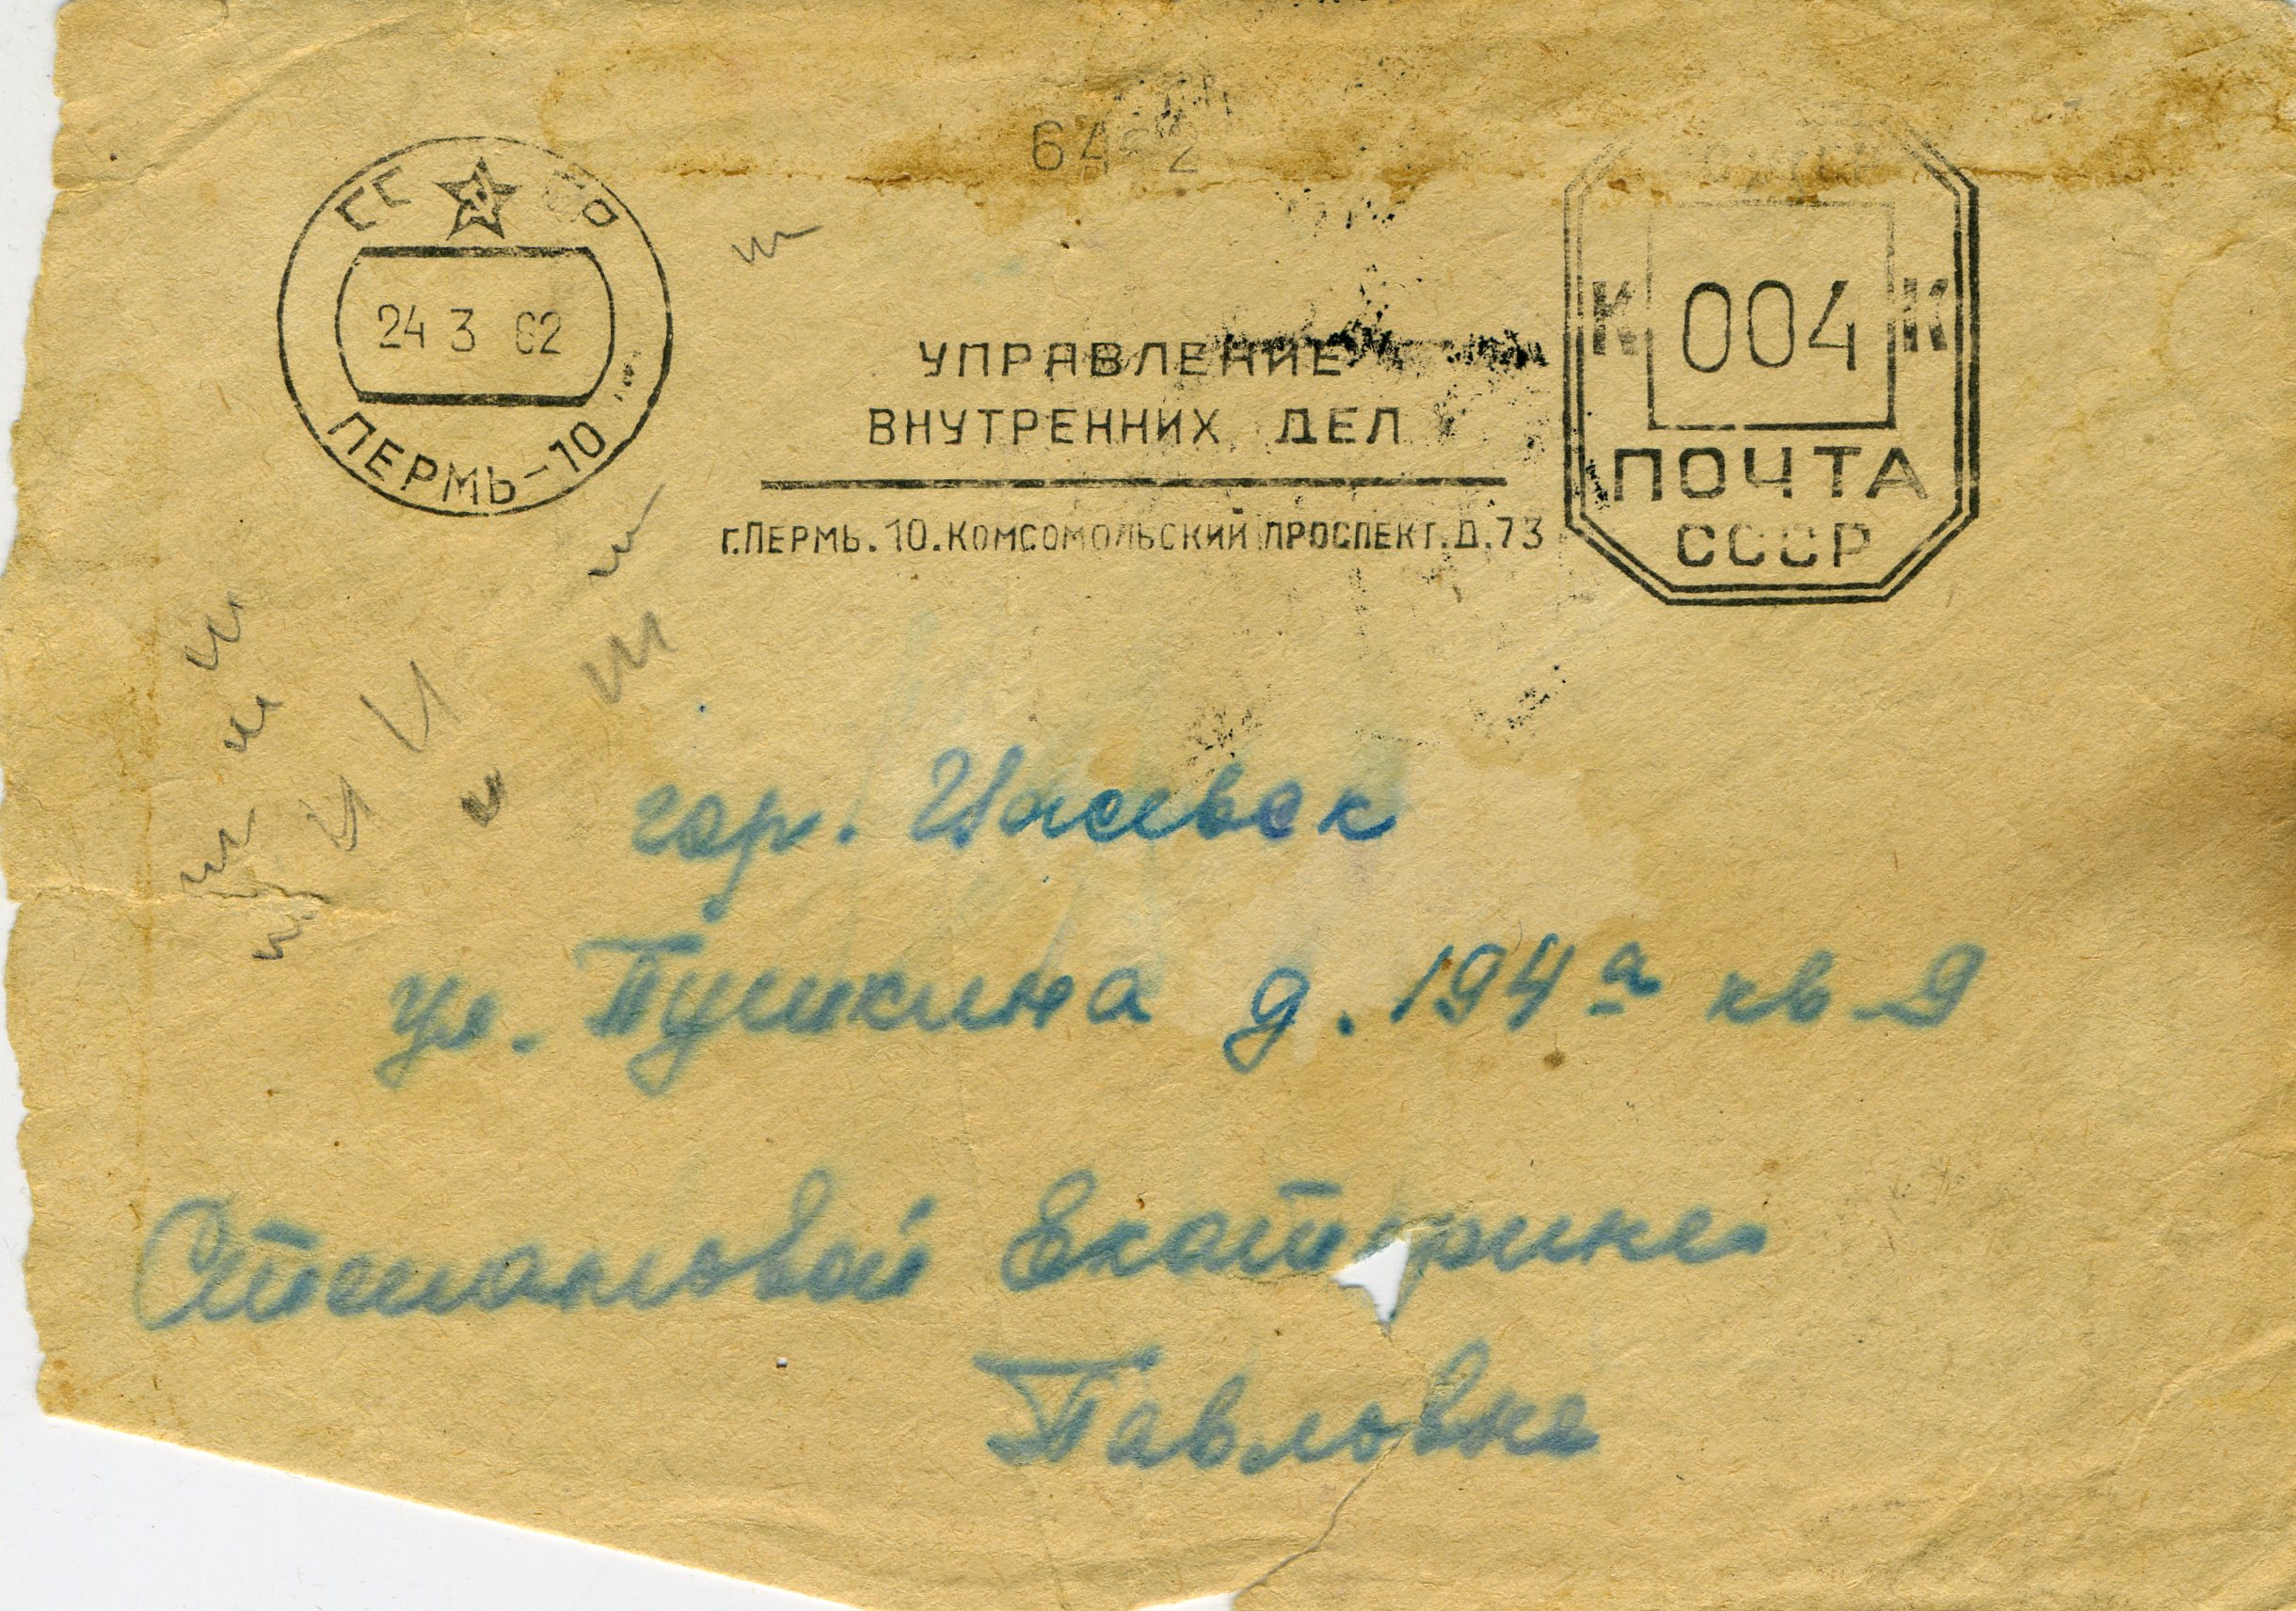 СССР
24 3 62
ПЕРМЬ-10
УПРАВЛЕНИЕ
ВНУТРЕННИХ ДЕЛ
г.ПЕРМЬ.10.КОМСОМОЛЬСКИЙ ПРОСПЕКТ.Д.73
К 004 К
ПОЧТА
СССР
гор. Ижевск
ул. Пушкина д. 194а кв-9
Степановой Екатерине
Павловне